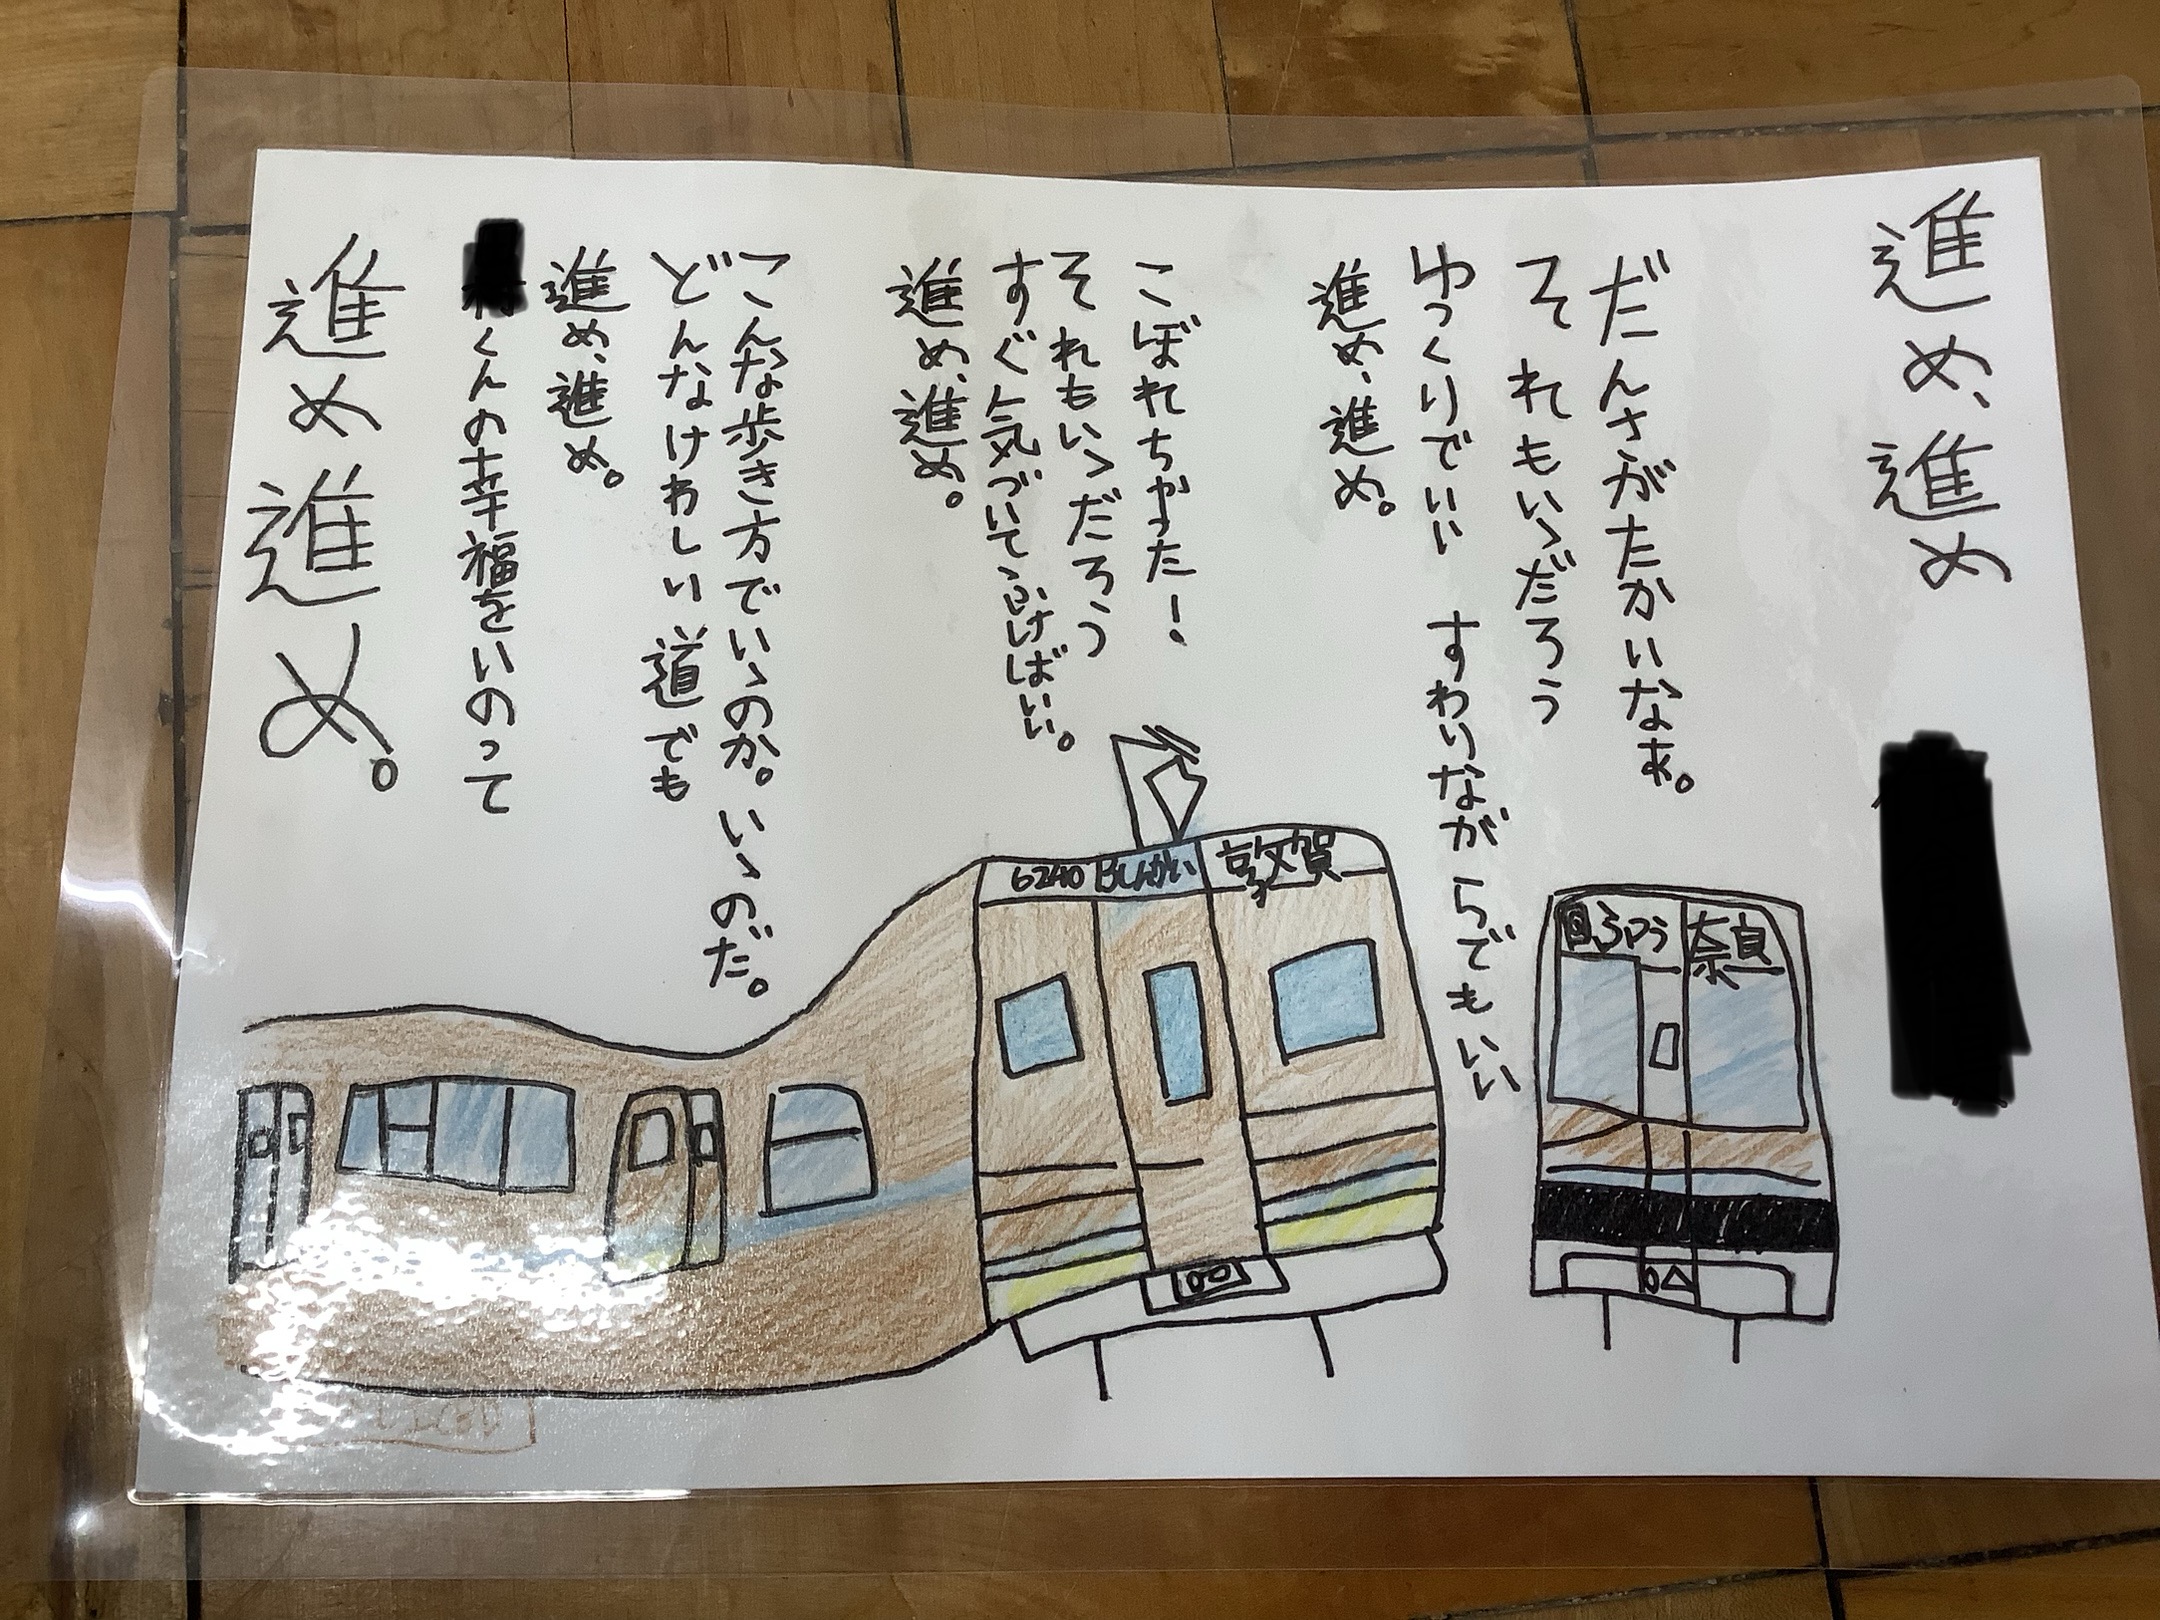 進め、進め
だんさがたかいなあ。
それもいゝだろう
ゆっくりでいい すわりながらでもいい
進め、進め。
こぼれちゃった!
それもいゝだろう
すぐ気づいてふけばいい。
進め、進め。
こんな歩き方でいゝのか。いゝのだ。
どんなけわしい道でも
進め、進め。
くんの幸福をいのって
進め進め。
6240 Bしんかい 敦賀
ふつう 奈良